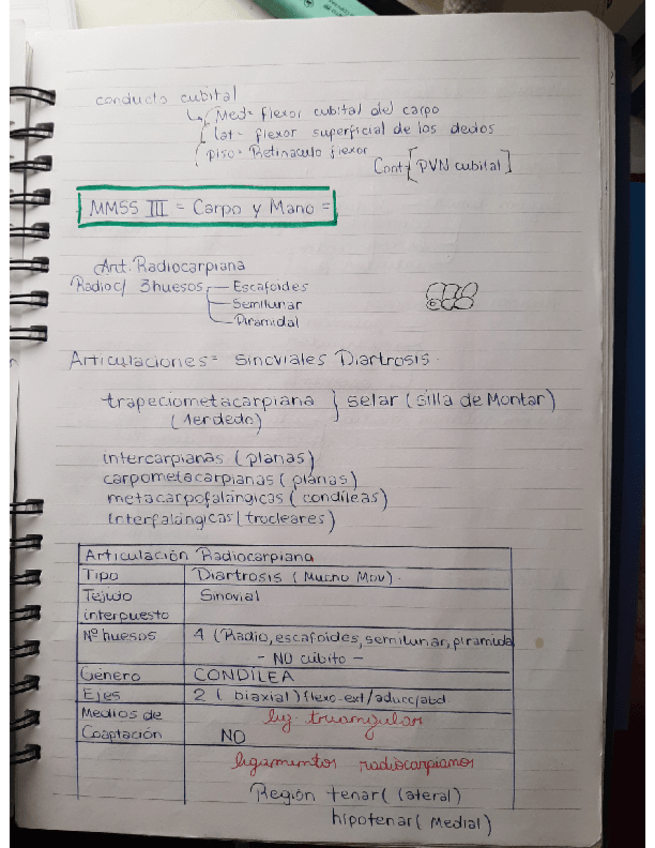 conducto cubital
Med= flexor cubital del carpo
lat= flexor superficial de los dedos
piso= Retinaculo flexor
Cont [PVN cubital]
MMSS III = Carpo y Mano =
Art. Radiocarpiana
Radio c/ 3 huesos — Escafoides
— Semilunar
— Piramidal
Articulaciones= Sinoviales Diartrosis.
trapeciometacarpiana } selar (silla de Montar)
(1er dedo)
intercarpianas (planas)
carpometacarpianas (planas)
metacarpofalángicas (condíleas)
Interfalángicas (trocleares)
Articulación Radiocarpiana
Tipo Diartrosis (Mucho Mov).
Tejido interpuesto Sinovial
Nº huesos 4 (Radio, escafoides, semilunar, piramidal
- NO cúbito -
Género CONDÍLEA
Ejes 2 (biaxial) flexo-ext/aducc/abd
Medios de lig triangular
Coaptación NO
ligamentos radiocarpianos
Región tenar (lateral)
hipotenar (Medial)